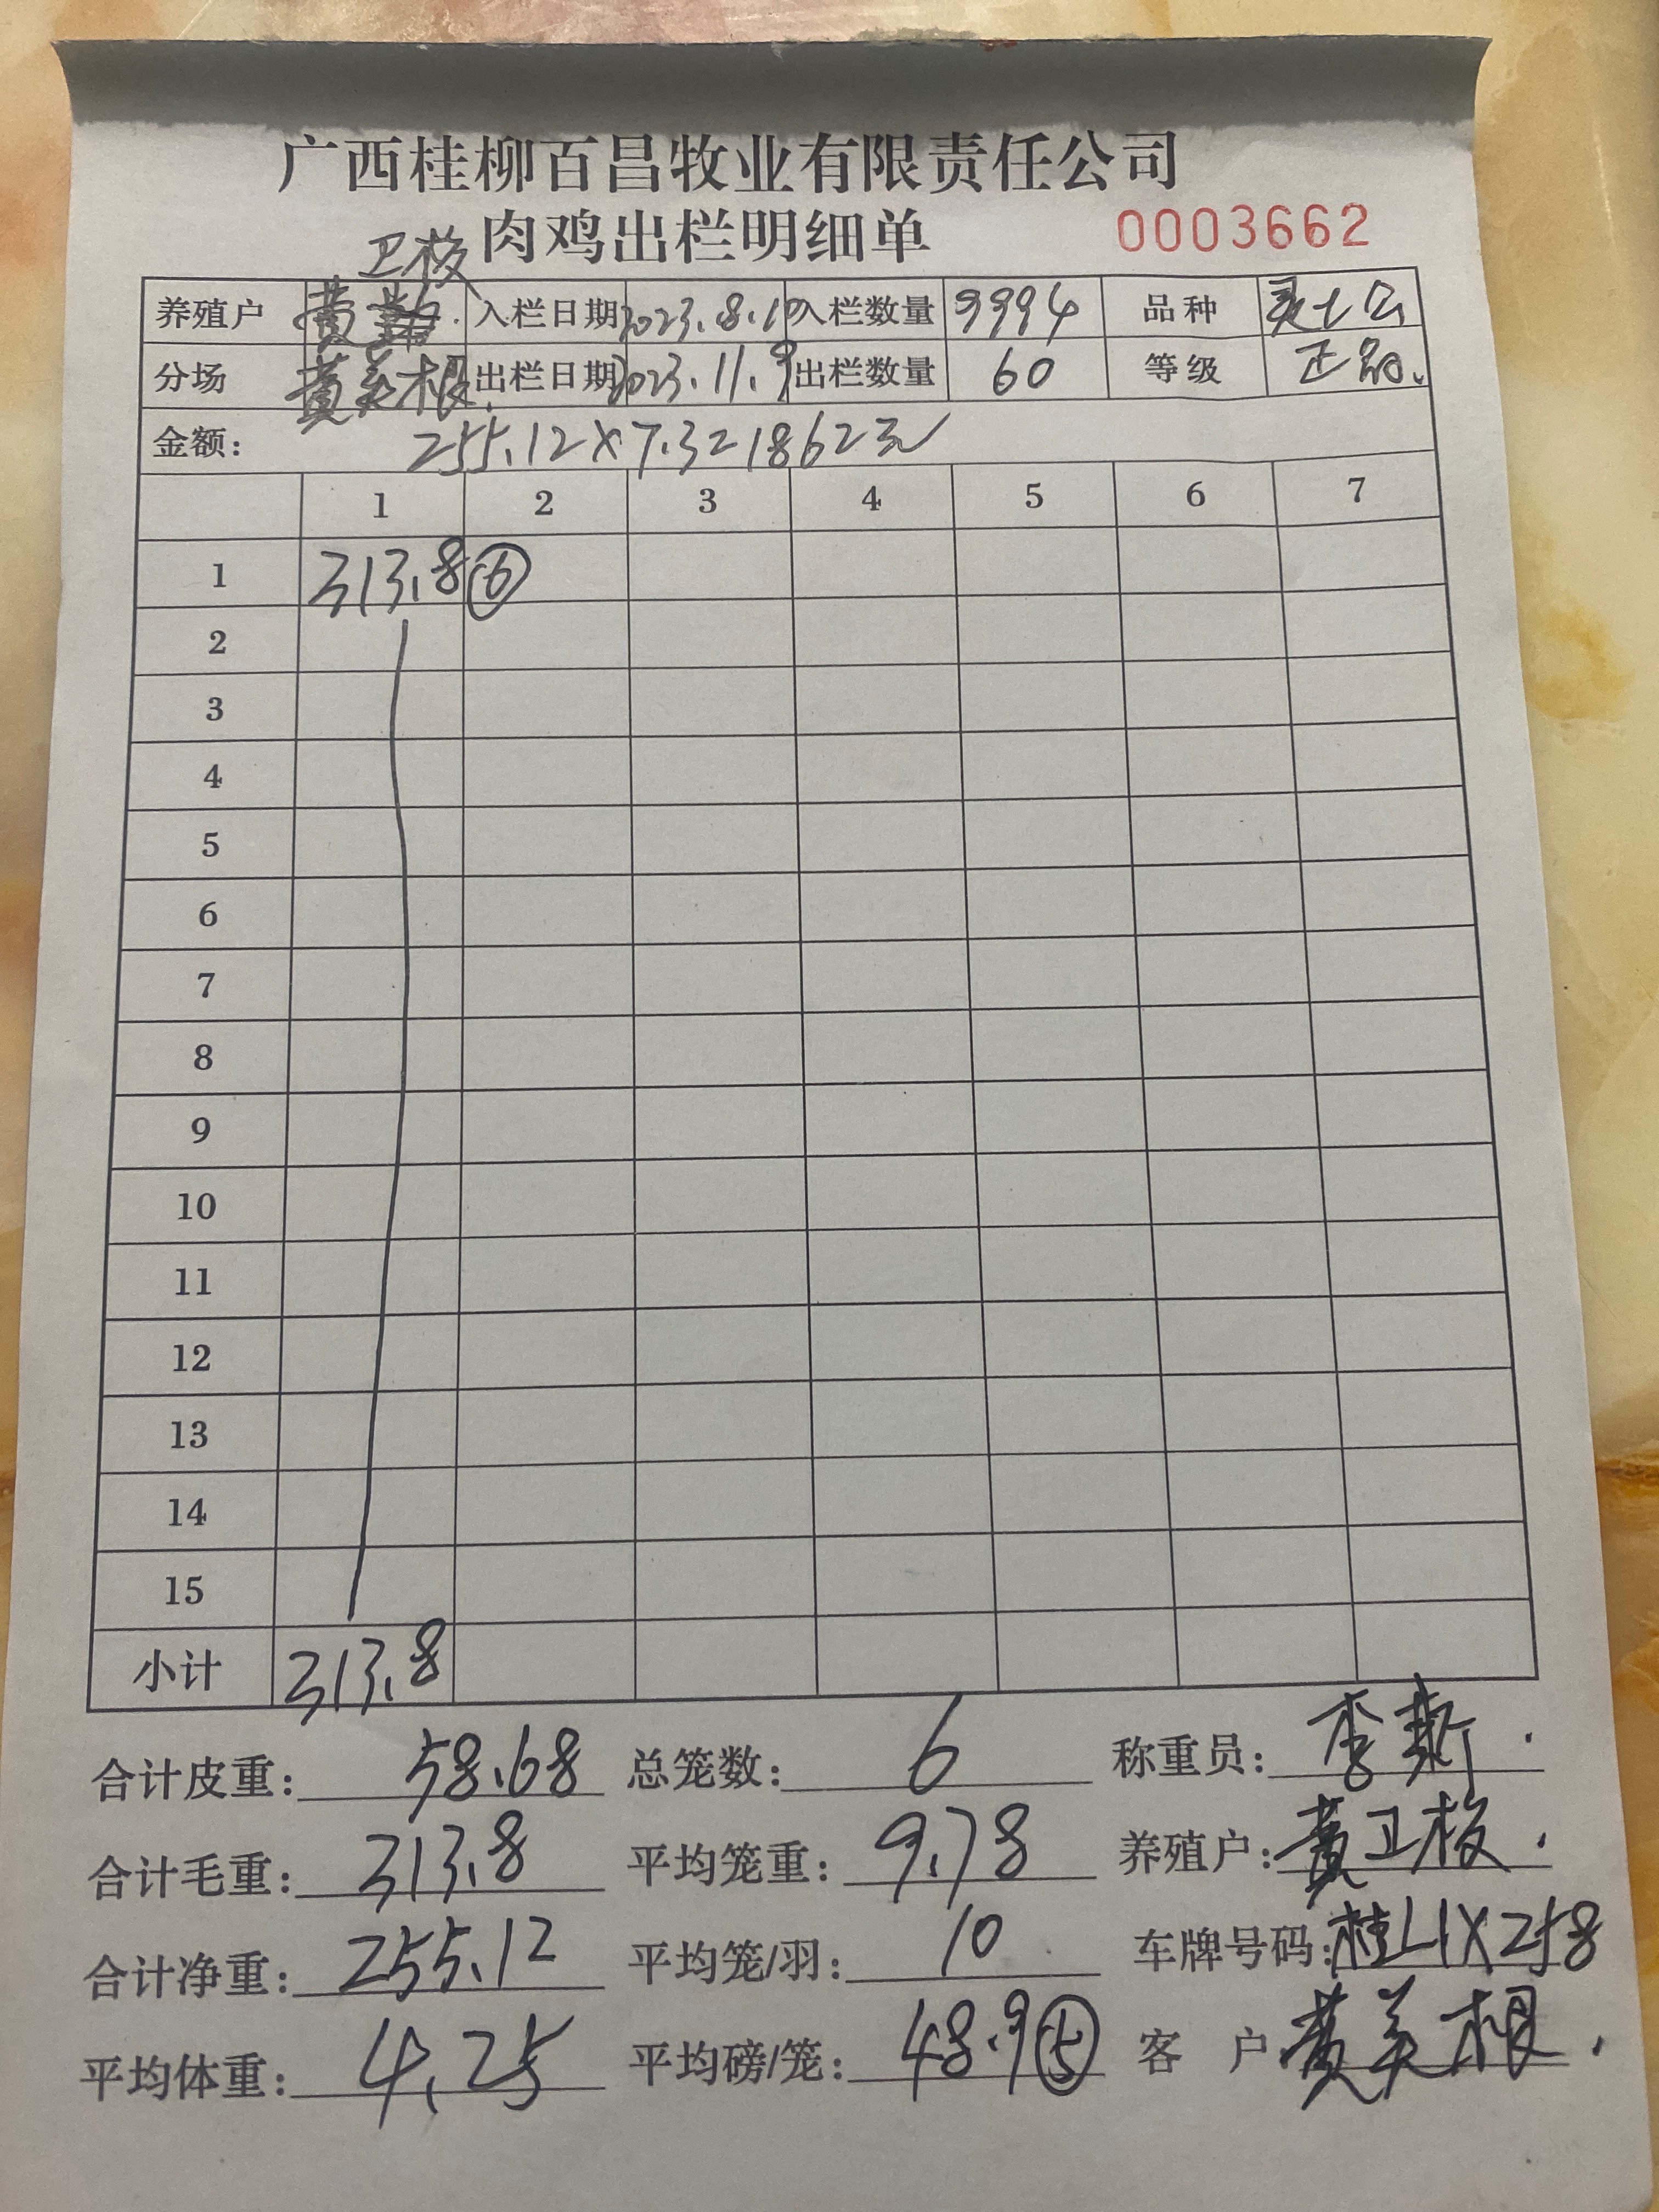 广西桂柳百昌牧业有限责任公司
肉鸡出栏明细单 0003662
卫枝
养殖户 黄 入栏日期 2023.8.10 入栏数量 9994 品种 灵土公
分场 黄美根 出栏日期 2023.11.9 出栏数量 60 等级 正品
金额: 255.12×7.3=1862元
1 2 3 4 5 6 7
1 313.8 ⑥
2
3
4
5
6
7
8
9
10
11
12
13
14
15
小计 313.8
合计皮重: 58.68 总笼数: 6 称重员: 李
合计毛重: 313.8 平均笼重: 9.78 养殖户: 黄卫枝
合计净重: 255.12 平均笼/羽: 10 车牌号码: 桂L1X258
平均体重: 4.25 平均磅/笼: 48.9⑤ 客户 黄美根